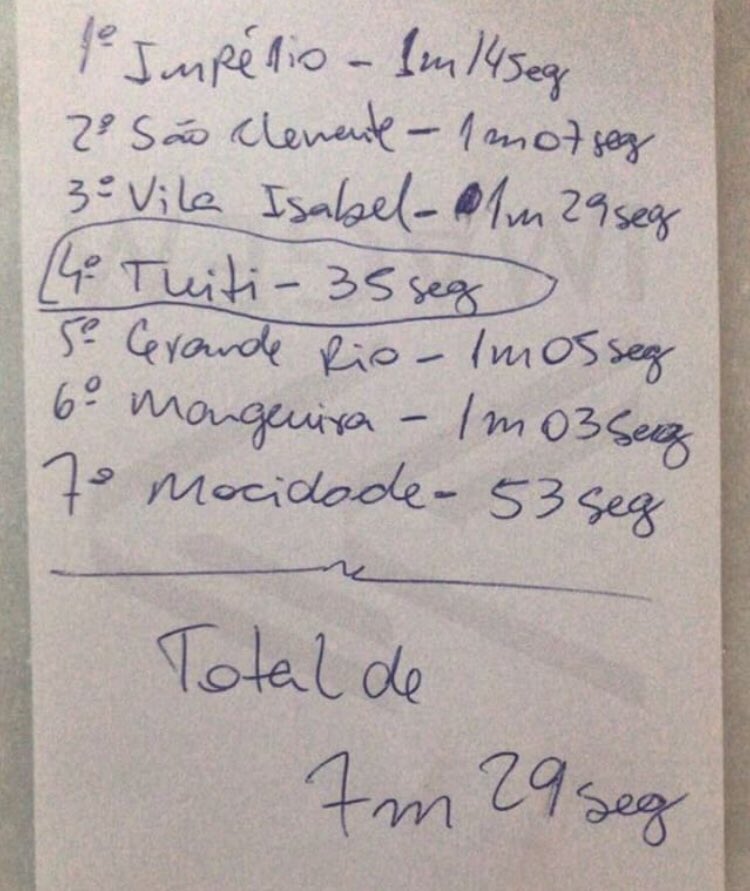 1º Império - 1m14seg
2º São Clemente - 1m07seg
3º Vila Isabel - 1m29seg
4º Tuiti - 35seg
5º Grande Rio - 1m05seg
6º Mangueira - 1m03seg
7º Mocidade - 53seg
Total de
7m29seg